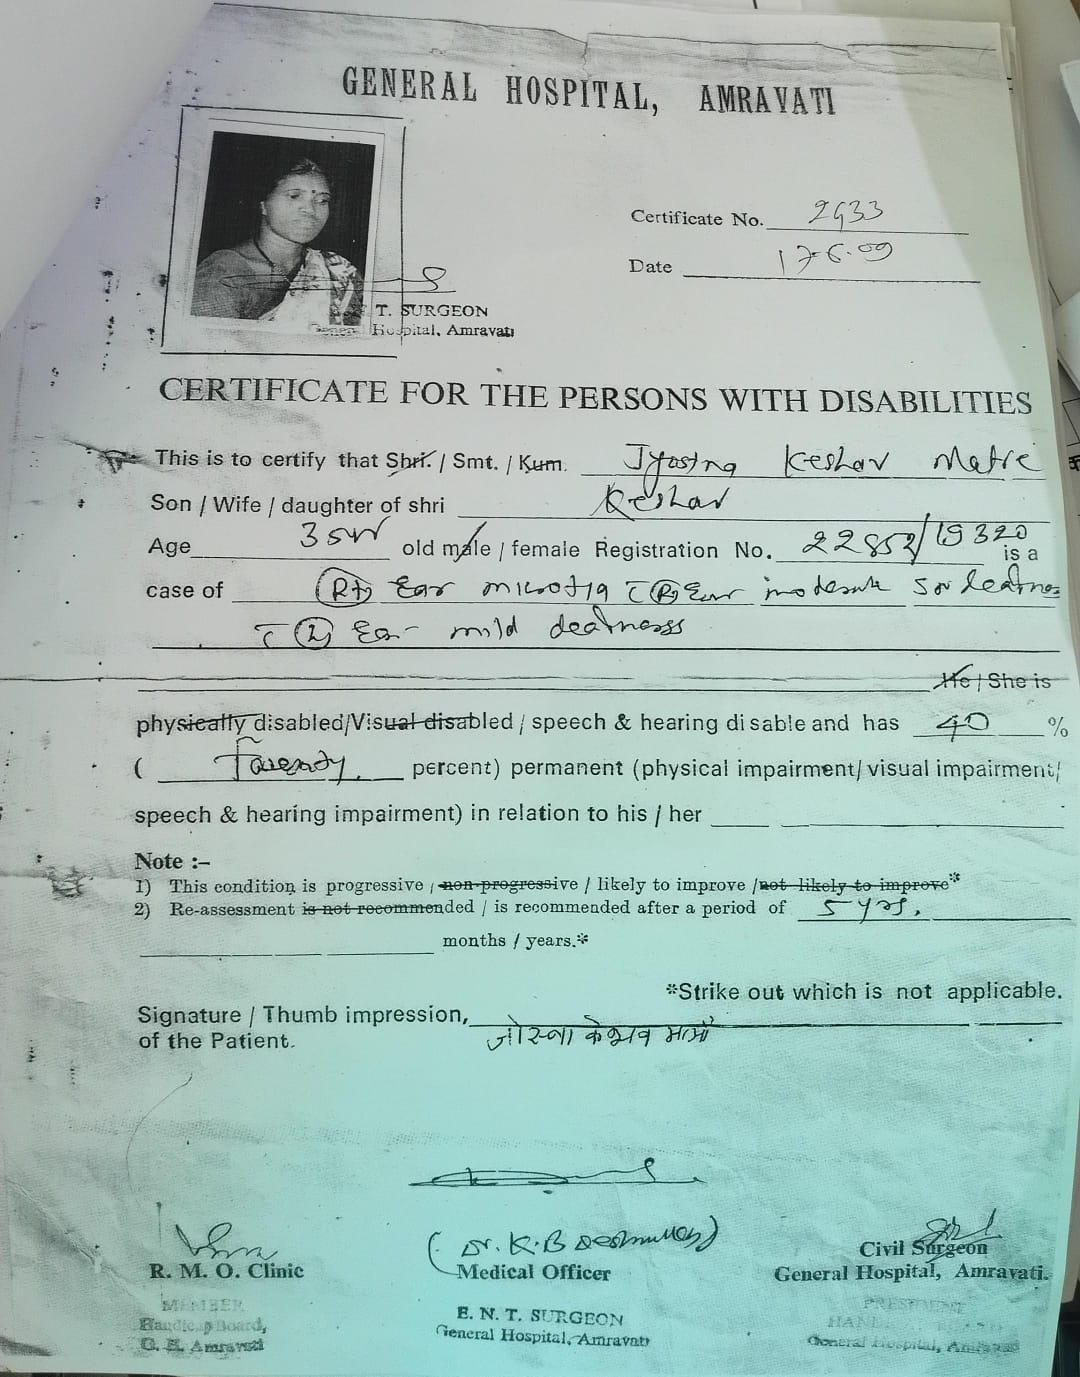 GENERAL HOSPITAL, AMRAVATI
Certificate No. 2933
Date 17-6-09
T. SURGEON
Hospital, Amravati
CERTIFICATE FOR THE PERSONS WITH DISABILITIES
This is to certify that Shri. / Smt. / Kum. Jyostna Keshav Matre
Son / Wife / daughter of shri Keshav
Age old male / female Registration No. 22852/19320 is a
case of Rt Ear microtia Ear moderate deafness
Ear mild deafness
He / She is
physically disabled/Visual disabled / speech & hearing disable and has 40 %
( percent) permanent (physical impairment/ visual impairment/
speech & hearing impairment) in relation to his / her
Note :–
1) This condition is progressive / non-progressive / likely to improve / not likely to improve*
2) Re-assessment is not recommended / is recommended after a period of 5 yrs.
months / years.*
*Strike out which is not applicable.
Signature / Thumb impression,
of the Patient.
जोस्ना केशव मात्रे
(Dr. K.B Deshmukh)
R. M. O. Clinic
Medical Officer
Civil Surgeon
General Hospital, Amravati.
MEMBER
Handicap Board,
G. H. Amravati
E. N. T. SURGEON
General Hospital, Amravati
PRESIDENT
General Hospital, Amravati